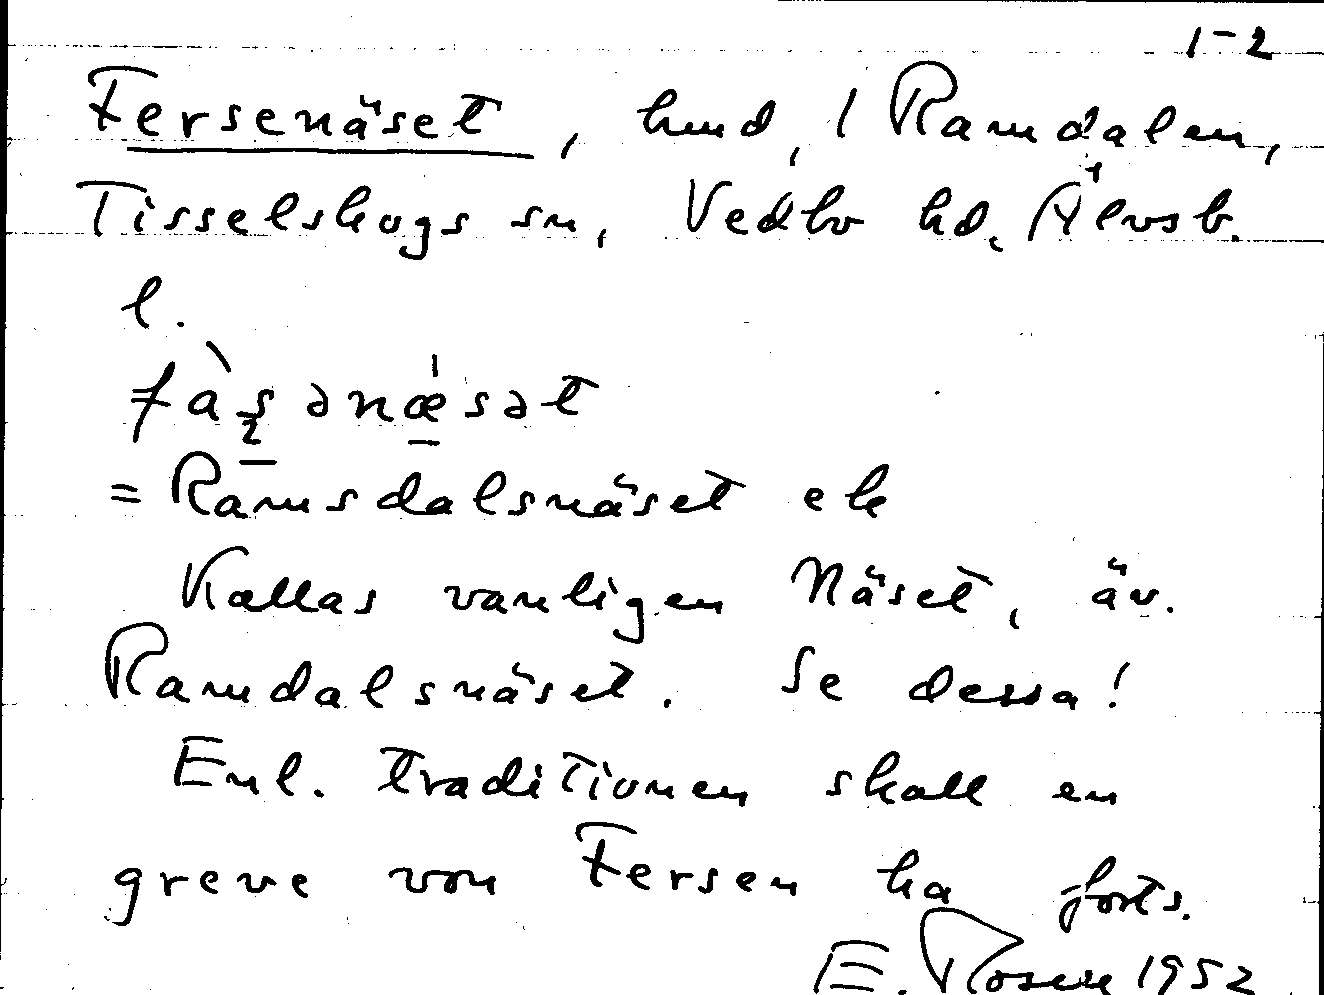 1-2
Fersenäset, hmd, i Ramdalen,
Tisselskogs sn, Vedbo hd. Älvsb.
l.
fàʂənæ̀sət
= Ramsdalsnäset ek
Kallas vanligen Näset, äv.
Ramdalsnäset. Se dessa!
Enl. traditionen skall en
greve von Fersen ha forts.
E. Rosell 1952